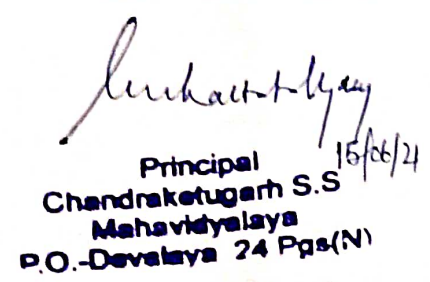 15/06/21
Principal
Chandraketugarh S.S
Mahavidyalaya
P.O.-Devalaya 24 Pgs(N)